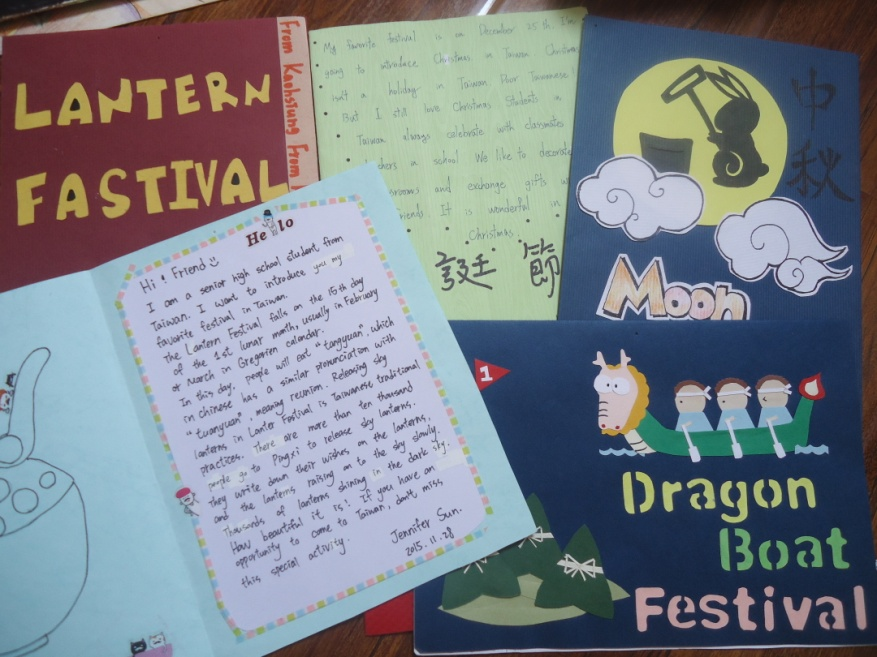 LANTERN
FASTIVAL
From Kaohsiung From
My favorite festival is on December 25 th. I'm
going to introduce Christmas in Taiwan Christmas
isn't a holiday in Taiwan Poor Taiwanese
But I still love Christmas Students in
Taiwan always celebrate with classmates
in school We like to decorate
and exchange gifts
It is wonderful in
Christmas.
節
中
秋
Moon
Hello
Hi! Friend
I am a senior high school student from
Taiwan. I want to introduce you my
favorite festival in Taiwan.
The Lantern Festival falls on the 15th day
of the 1st lunar month, usually in February
or March in Gregorien calendar.
In this day, people will eat "tangyuan", which
in chinese has a similar pronunciation with
"tuanyuan", meaning reunion. Releasing sky
lanterns in Lanter Festival is Taiwanese traditional
practices. There are more than ten thousand
people go to Pingxi to release sky lanterns.
They write down their wishes on the lanterns,
and the lanterns raising on to the sky slowly.
Thousands of lanterns shining in the dark sky.
How beautiful it is! if you have an
opportunity to come to Taiwan, don't miss
this special activity.
Jennifer Sun.
2015.11.28
1
Dragon
Boat
Festival